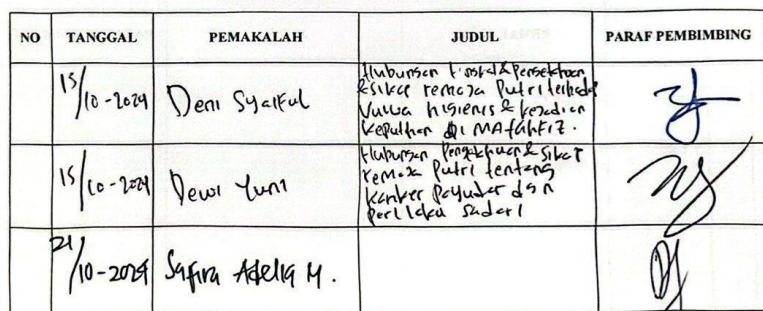 NO TANGGAL PEMAKALAH JUDUL PARAF PEMBIMBING
15/10-2024 Deni Syaiful
Hubungan tingkat Pengetahuan
& sikap remaja Putri terhadap
Vulva higienis & kejadian
keputihan di MA
15/10-2024 Dewi Yuni
Hubungan Pengetahuan & sikap
remaja Putri tentang
kanker payudar dan
perilaku sadari
21/10-2024 Safira Adelia M.